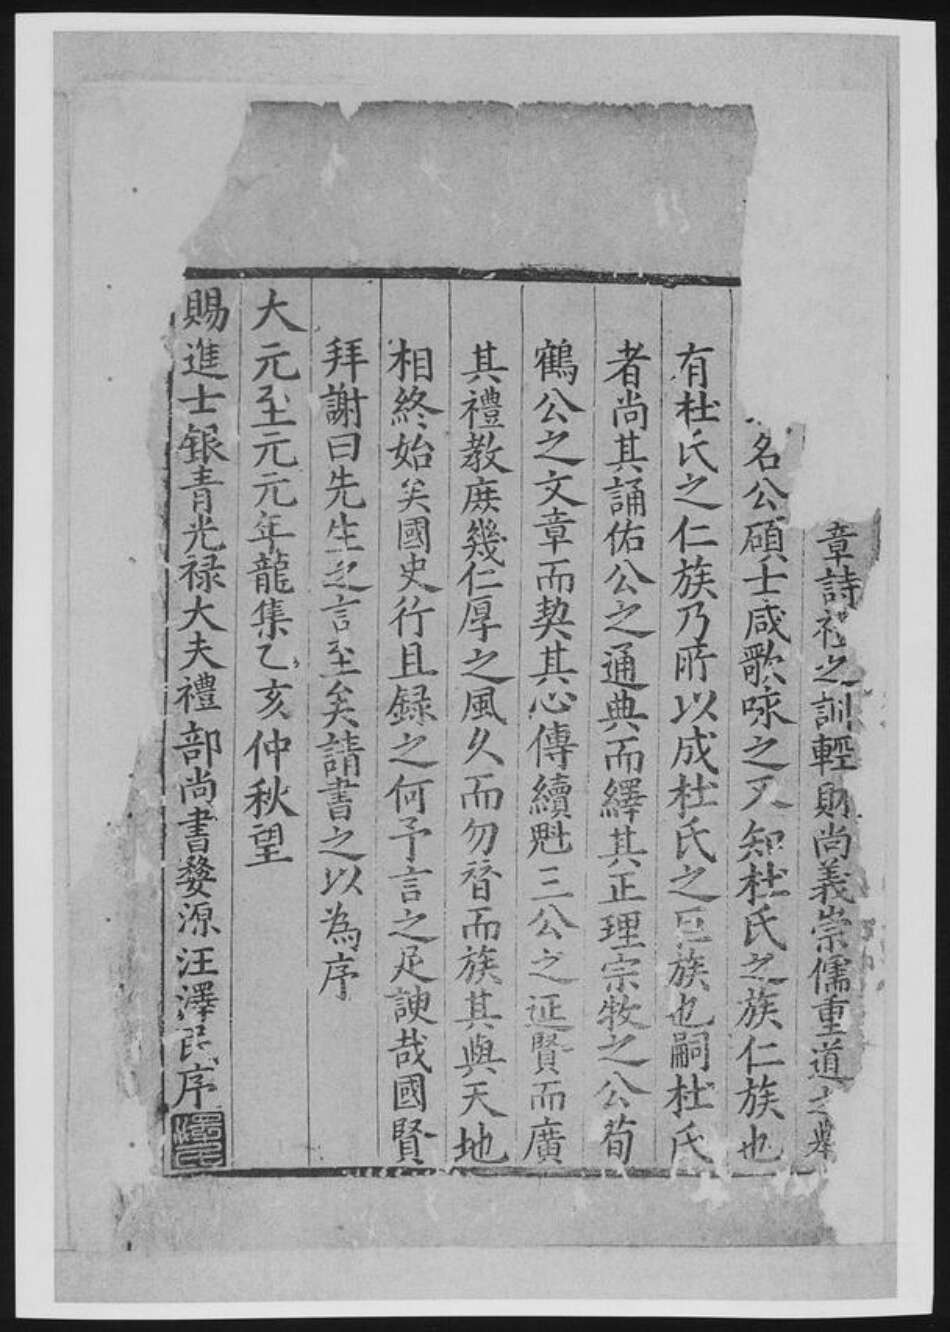 章詩礼之訓輕財尚義崇儒重道之舉
名公碩士咸歌咏之又知杜氏之族仁族也
有杜氏之仁族乃所以成杜氏之巨族也嗣杜氏
者尚其誦佑公之通典而繹其正理宗牧之公荀
鶴公之文章而契其心傳續魁三公之延賢而廣
其禮教庶幾仁厚之風久而勿替而族其與天地
相終始矣國史行且録之何予言之足諛哉國賢
拜謝曰先生之言至矣請書之以為序
大元至元元年龍集乙亥仲秋望
賜進士银青光禄大夫禮部尚書婺源汪澤民序
澤民